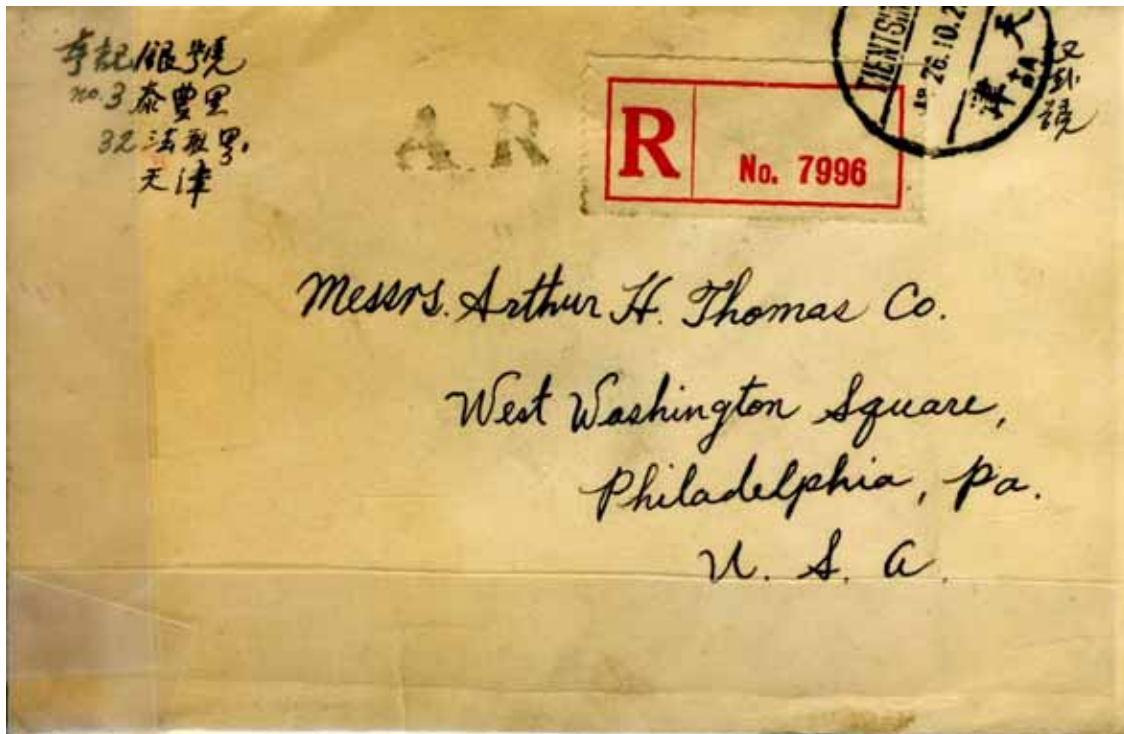 記銀號
no. 3 泰豐里
32 法租界,
天津
A. R
R No. 7996
TIENTSIN
26.10.2
天津
Messrs. Arthur H. Thomas Co.
West Washington Square,
Philadelphia, Pa.
U. S. A.